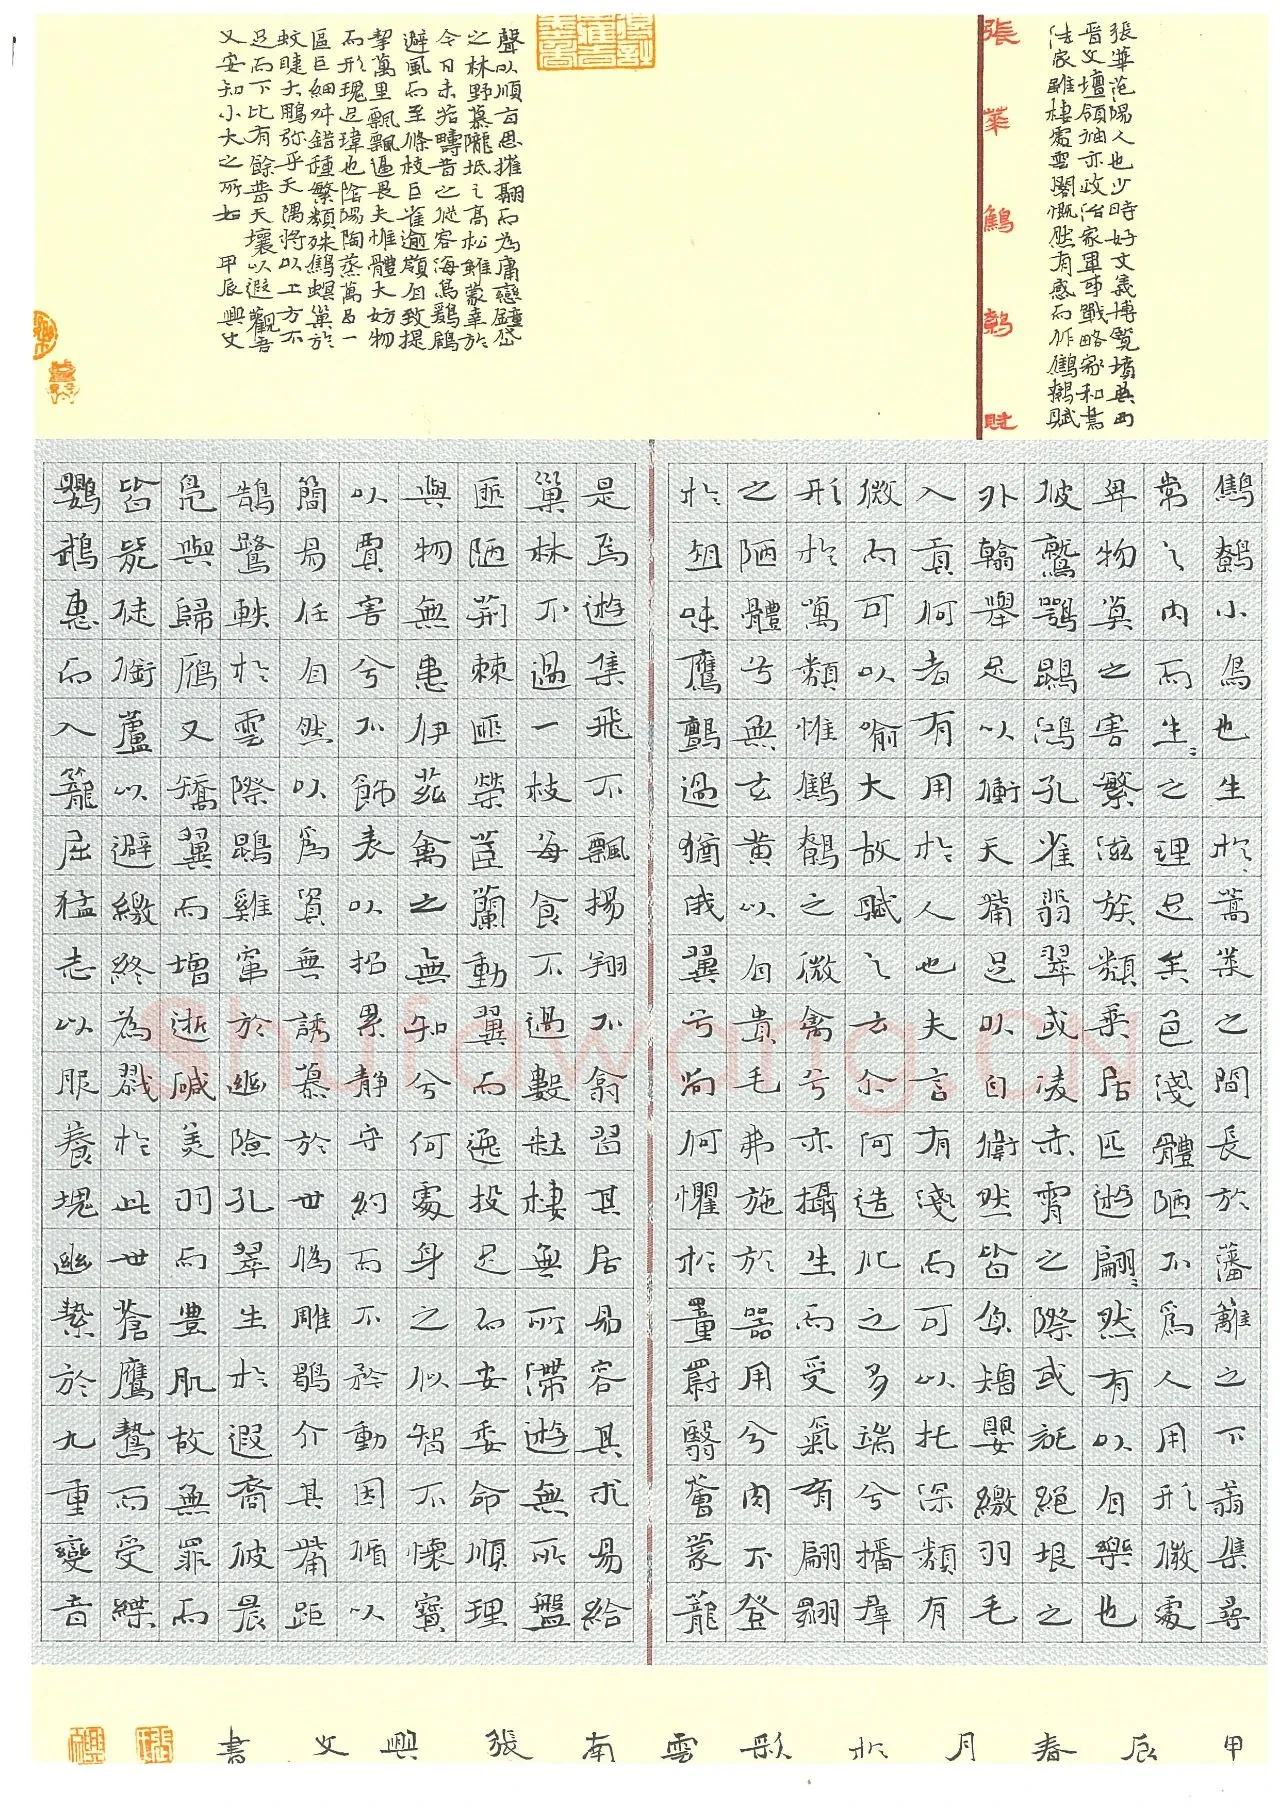 張華范陽人也少時好文義博覽墳典西
晉文壇領袖亦政治家軍事戰略家和書
法家雖棲處雲閣慨然有感而作鷦鷯賦
張華鷦鷯賦
鷦鷯小鳥也生於蒿萊之間長於藩籬之下翔集尋
常之內而生〻之理足矣色淺體陋不為人用形微處
卑物莫之害繁滋族類乘居匹遊翩〻然有以自樂也
彼鷲鶚鵾鴻孔雀翡翠或凌赤霄之際或託絕垠之
外翰舉足以衝天觜足以自衛然皆負矰嬰繳羽毛
入貢何者有用於人也夫言有淺而可以托深類有
微而可以喻大故賦之云尒何造化之多端兮播群
形於萬類惟鷦鷯之微禽兮亦攝生而受氣有翩翾
之陋體兮無玄黃以自貴毛弗施於器用兮肉不登
於俎味鷹鸇過猶俄翼兮尚何懼於罿罻翳薈蒙蘢
是焉遊集飛不飄揚翔不翕習其居易容其求易給
巢林不過一枝每食不過數粒棲無所滯遊無所盤
匪陋荊棘匪榮茝蘭動翼而逸投足而安委命順理
與物無患伊茲禽之無知兮何處身之似智不懷寶
以賈害兮不飾表以招累靜守約而不矜動因循以
簡易任自然以為資無誘慕於世偽雕鶡介其觜距
鵠鷺軼於雲際鵾雞竄於幽險孔翠生於遐裔彼晨
鳧與歸鴈又矯翼而增逝咸美羽而豐肌故無罪而
皆斃徒銜蘆以避繳終為戮於此世蒼鷹鷙而受緤
鸚鵡惠而入籠屈猛志以服養塊幽縶於九重變音
聲以順旨思摧翮而為庸戀鐘岱
之林野慕隴坻之高松雖蒙幸於
今日未若疇昔之從容海鳥鶢鶋
避風而至條枝巨雀逾嶺自致提
挈萬里飄飄逼畏夫惟體大妨物
而形瑰足瑋也陰陽陶蒸萬品一
區巨細舛錯種繁類殊鷦螟巢於
蚊睫大鵬弥乎天隅將以上方不
足而下比有餘普天壤以遐觀吾
又安知小大之所如 甲辰興文
甲辰春月於彩雲南張興文書
shufawang.CN